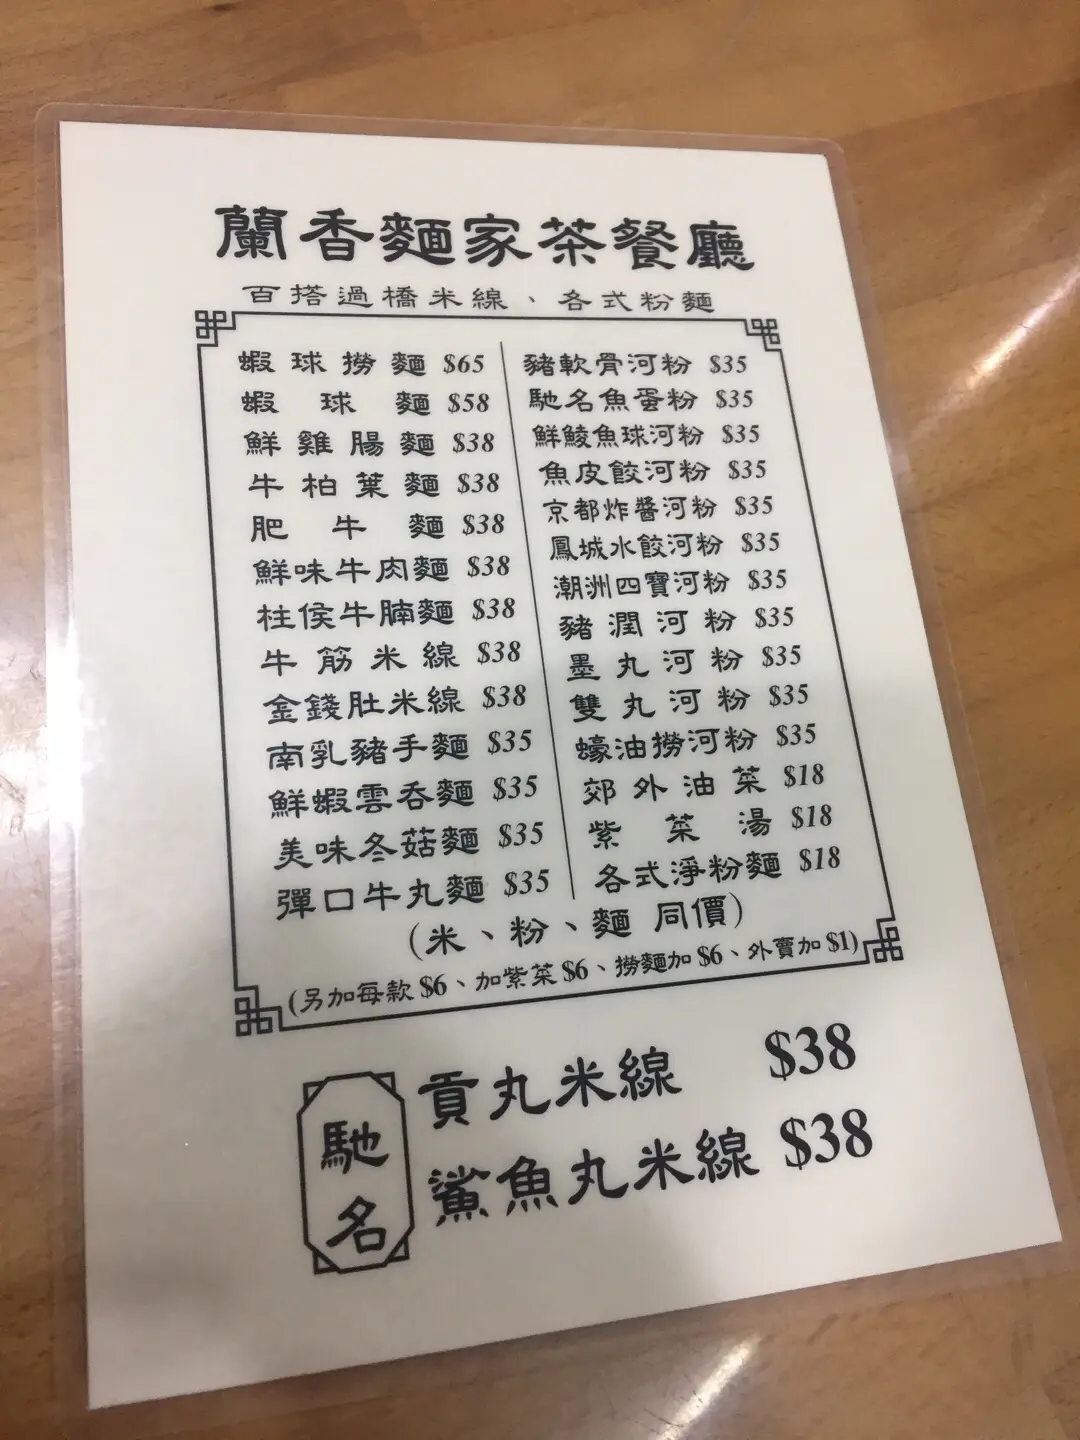 蘭香麵家茶餐廳
百搭過橋米線、各式粉麵
蝦球撈麵 $65
蝦球麵 $58
鮮雞腸麵 $38
牛柏葉麵 $38
肥牛麵 $38
鮮味牛肉麵 $38
柱侯牛腩麵 $38
牛筋米線 $38
金錢肚米線 $38
南乳豬手麵 $35
鮮蝦雲吞麵 $35
美味冬菇麵 $35
彈口牛丸麵 $35
豬軟骨河粉 $35
馳名魚蛋粉 $35
鮮鯪魚球河粉 $35
魚皮餃河粉 $35
京都炸醬河粉 $35
鳳城水餃河粉 $35
潮洲四寶河粉 $35
豬潤河粉 $35
墨丸河粉 $35
雙丸河粉 $35
蠔油撈河粉 $35
郊外油菜 $18
紫菜湯 $18
各式淨粉麵 $18
(米、粉、麵 同價)
(另加每款 $6、加紫菜 $6、撈麵加 $6、外賣加 $1)
馳名
貢丸米線 $38
鯊魚丸米線 $38